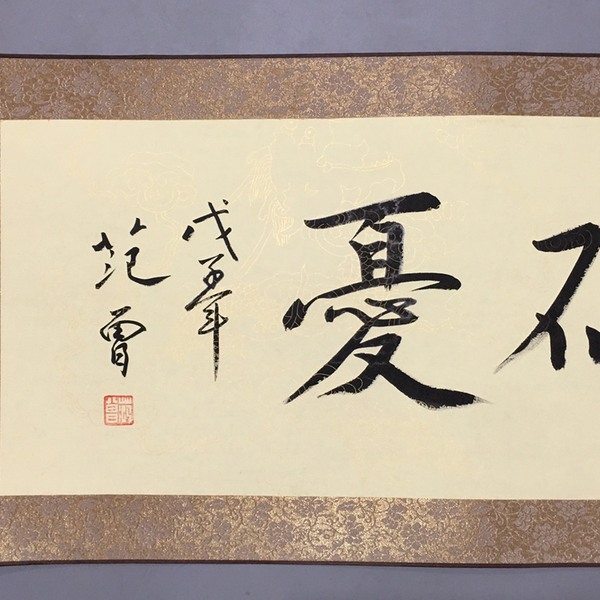 不憂
戊子年
范曾